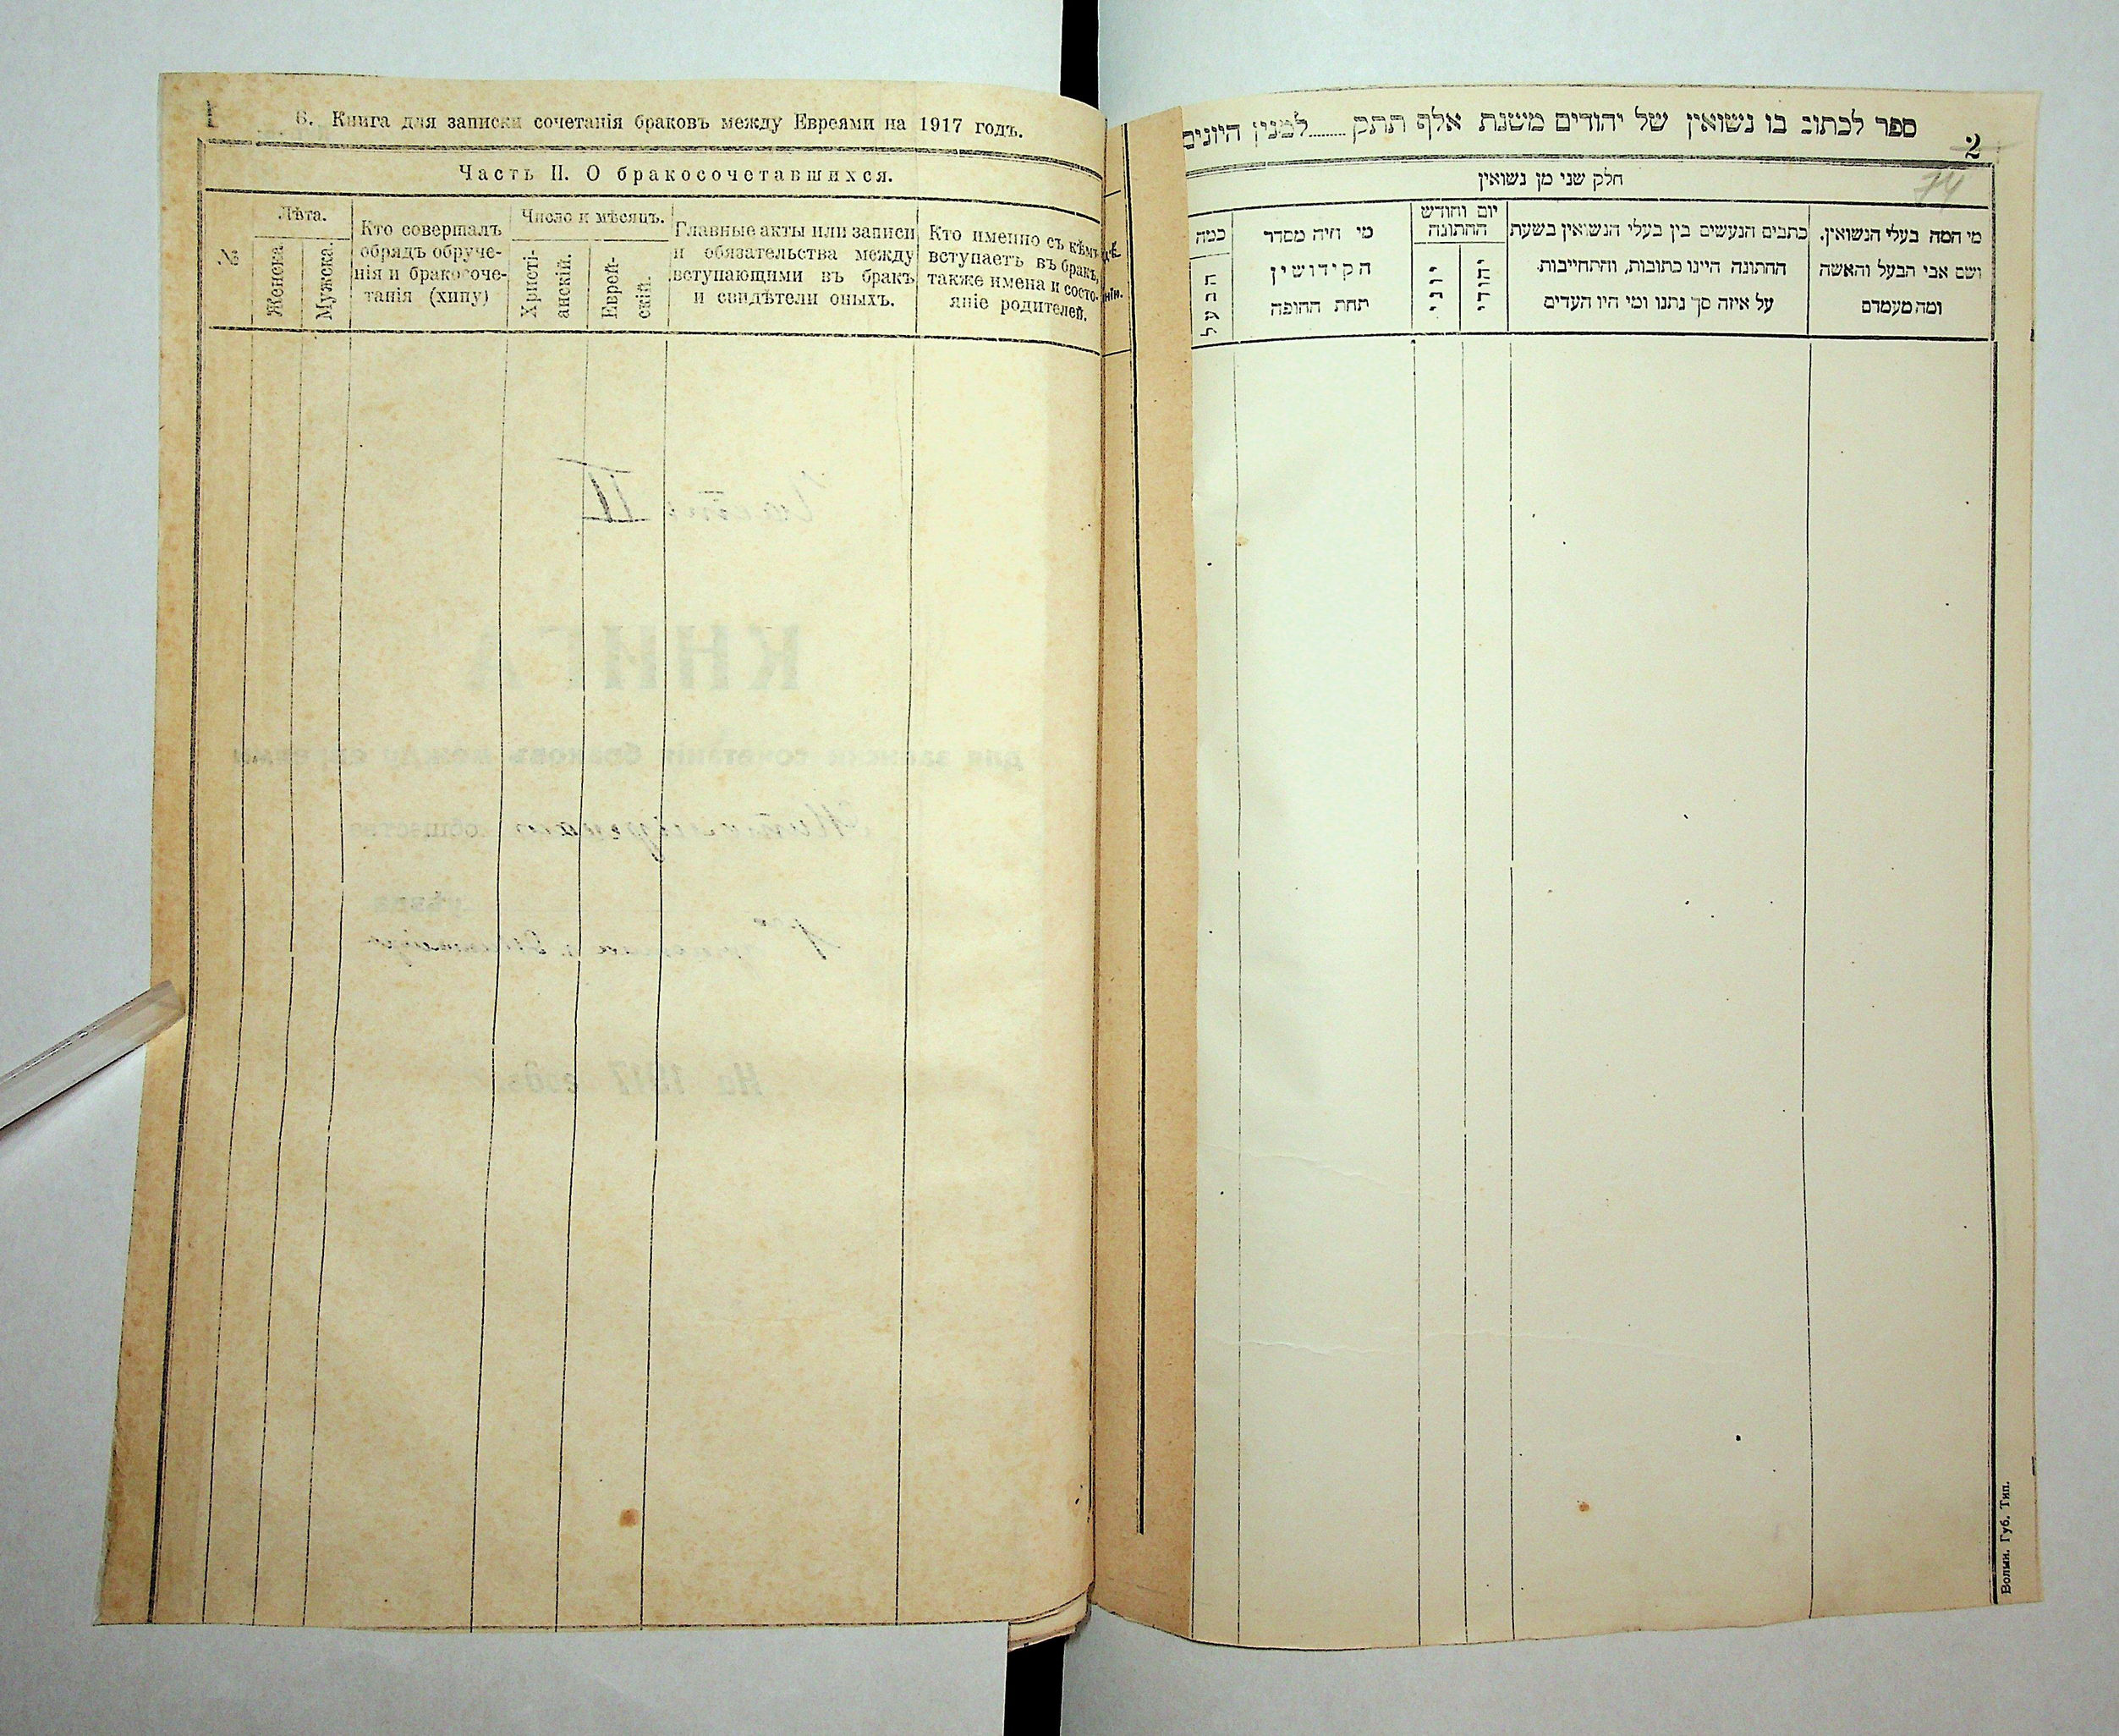 1
6. Книга для записки сочетанія браковъ между Евреями на 1917 годъ.
Часть II. О бракосочетавшихся.
№
Лѣта.
Женска.
Мужска.
Кто совершалъ
обрядъ обруче-
нія и бракосоче-
танія (хипу)
Число и мѣсяцъ.
Христі-
анскій.
Еврей-
скій.
Главные акты или записи
и обязательства между
вступающими въ бракъ
и свидѣтели оныхъ.
Кто именно съ кѣмъ
вступаетъ въ бракъ,
также имена и состо-
яніе родителей.
ספר לכתוב בו נשואין של יהודים משנת אלף תתק........למנין היונים
2
74
חלק שני מן נשואין
מי המה בעלי הנשואין.
ושם אבי הבעל והאשה
ומה מעמדם
כתבים הנעשים בין בעלי הנשואין בשעת
החתונה היינו כתובות, והתחייבות
על איזה סך נתנו ומי היו העדים
יום וחודש
החתונה
יהודי
יוני
מי היה מסדר
הקידושין
תחת החופה
כמה
הבעל
Волын. Губ. Тип.
Часть II
КНИГА
для записки сочетанія браковъ между евреями
общества
уѣзда
На 1917 годъ.